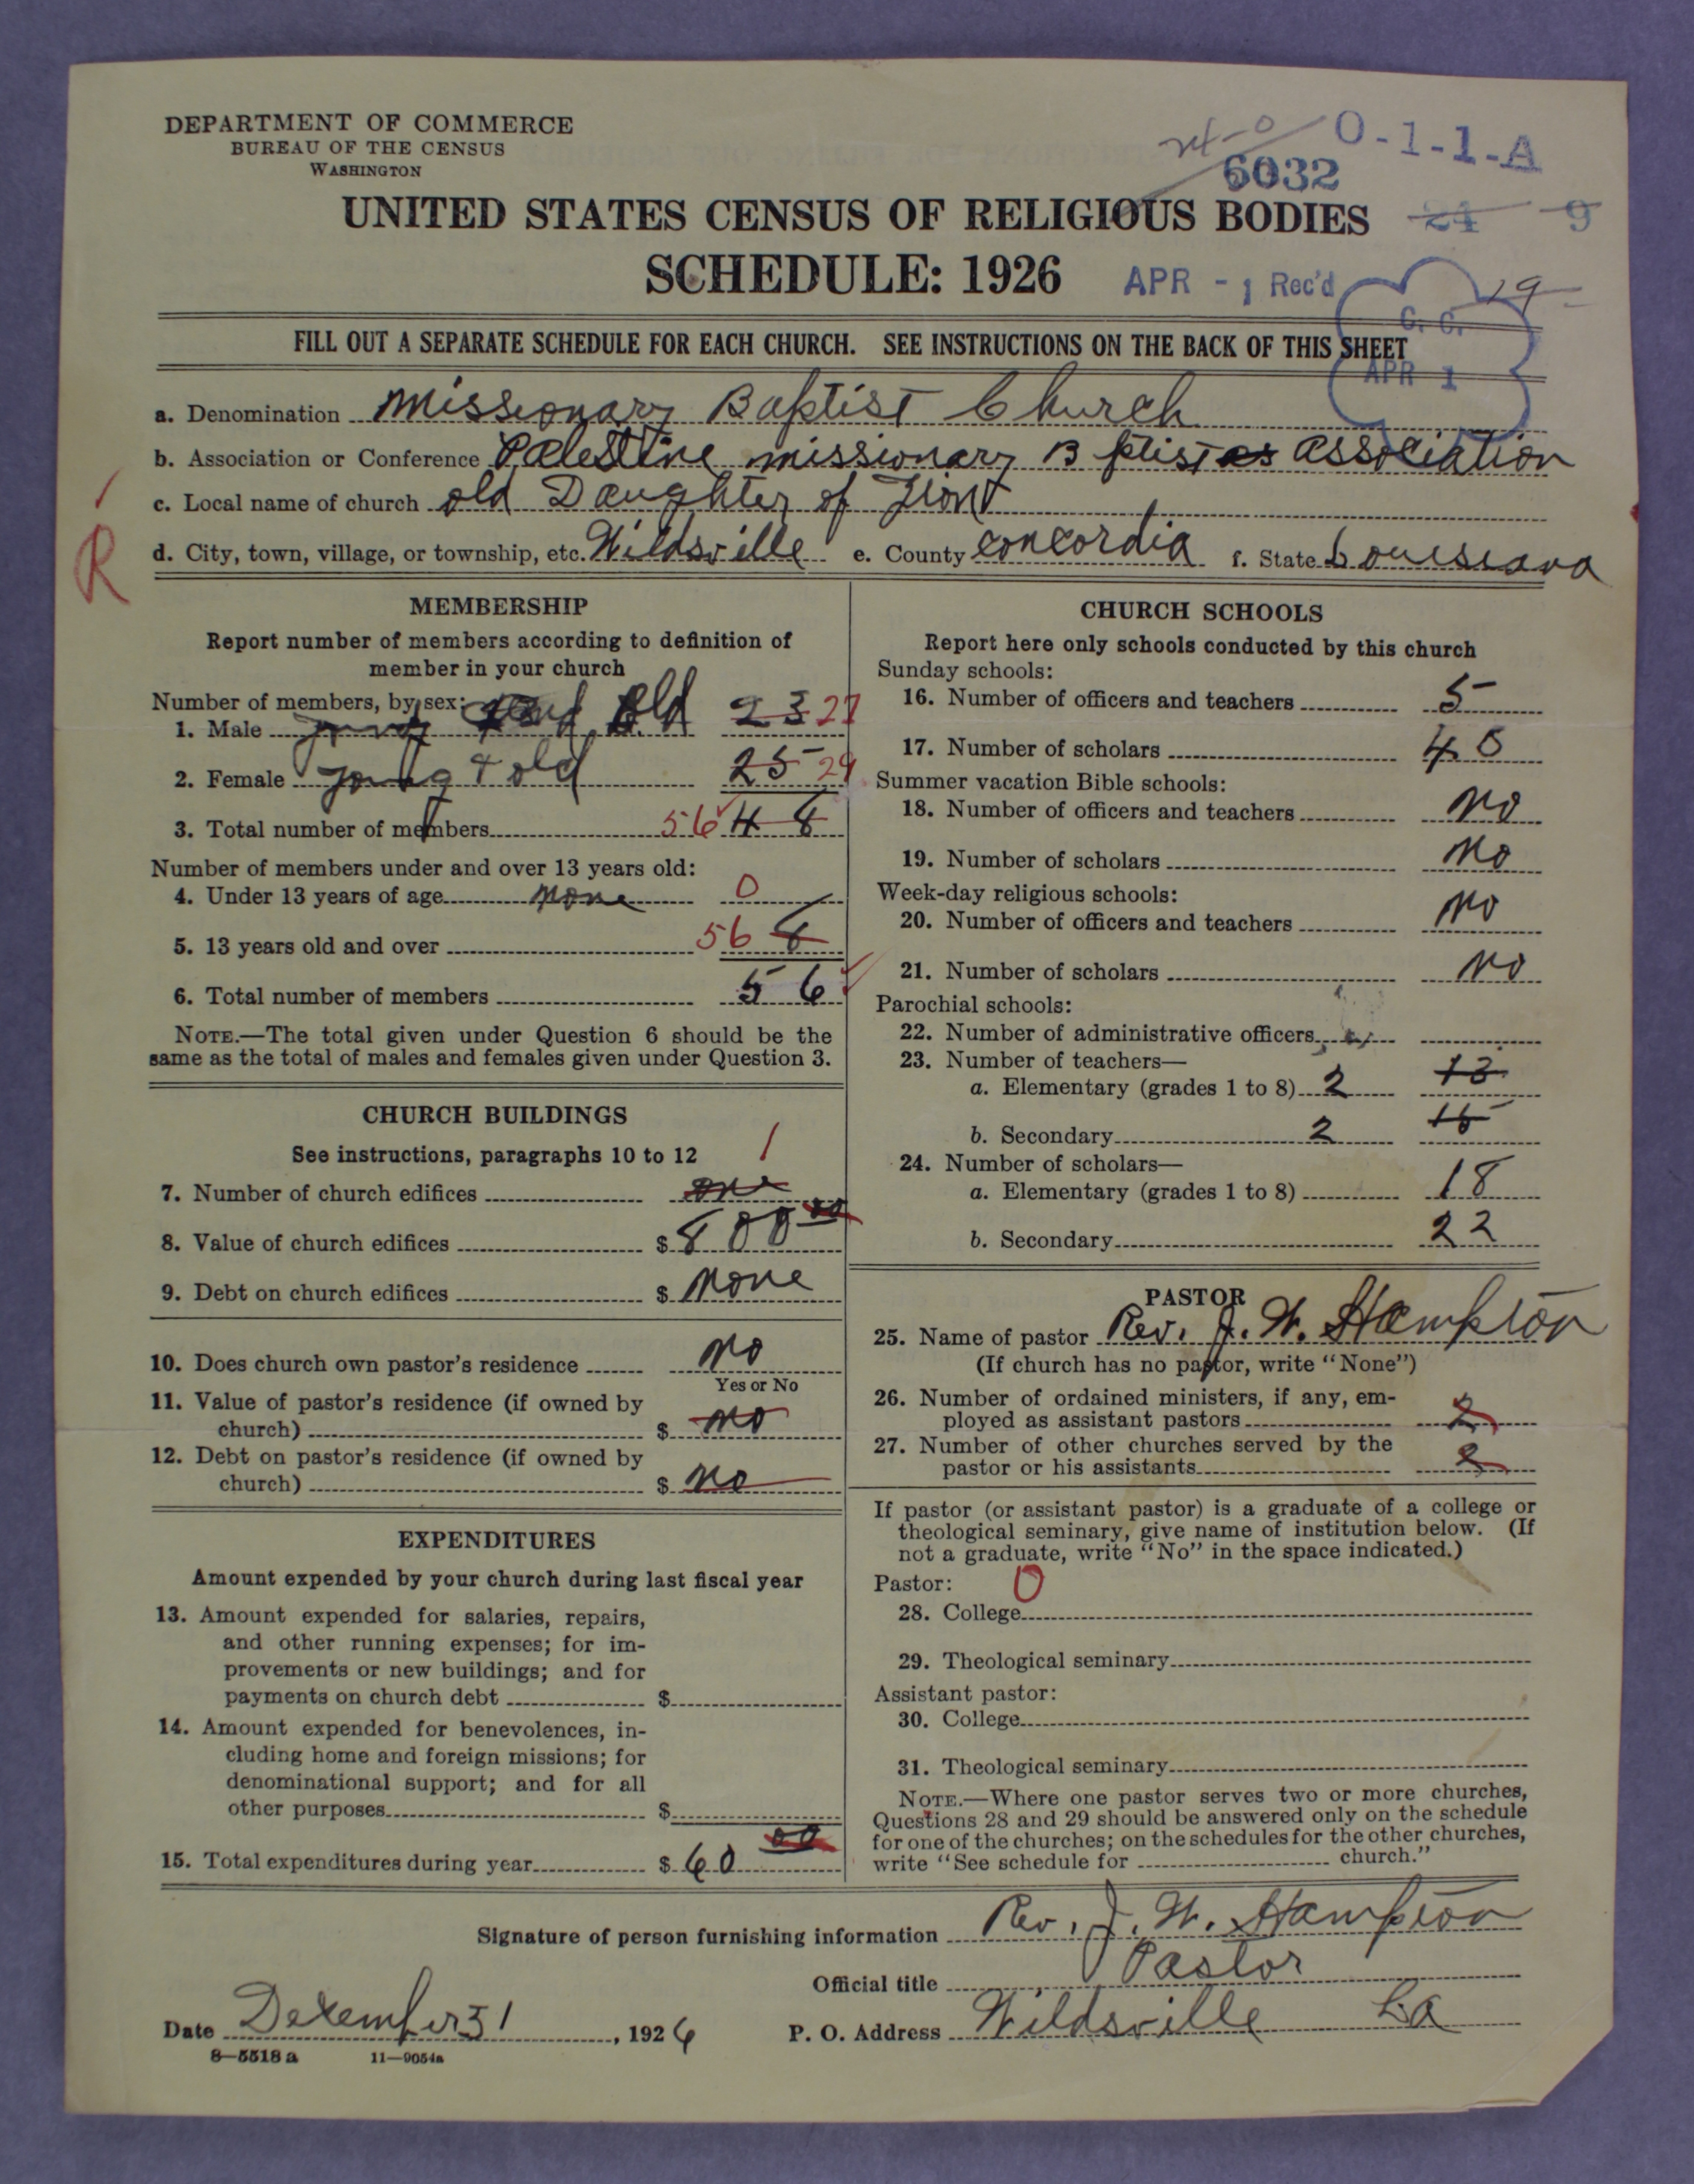 DEPARTMENT OF COMMERCE
BUREAU OF THE CENSUS
WASHINGTON
0-1-1-A
6032
UNITED STATES CENSUS OF RELIGIOUS BODIES 24 9
SCHEDULE: 1926 APR - 1 Rec'd 19
C. C.
APR 1
FILL OUT A SEPARATE SCHEDULE FOR EACH CHURCH. SEE INSTRUCTIONS ON THE BACK OF THIS SHEET
a. Denomination Missionary Baptist Church
b. Association or Conference Palestine missionary B ptist Association
c. Local name of church old Daughter of Zion
R
d. City, town, village, or township, etc. Wildsville e. County Concordia f. State Louisiana
MEMBERSHIP
Report number of members according to definition of
member in your church
Number of members, by sex:
1. Male young and Old 23 27
2. Female young & old 25 29
3. Total number of members 56 48
Number of members under and over 13 years old:
4. Under 13 years of age none 0
5. 13 years old and over 56 8
6. Total number of members 56
NOTE.—The total given under Question 6 should be the
same as the total of males and females given under Question 3.
CHURCH BUILDINGS
See instructions, paragraphs 10 to 12 1
7. Number of church edifices one
8. Value of church edifices $ 800 00
9. Debt on church edifices $ None
10. Does church own pastor's residence no
Yes or No
11. Value of pastor's residence (if owned by
church) $ no
12. Debt on pastor's residence (if owned by
church) $ no
EXPENDITURES
Amount expended by your church during last fiscal year
13. Amount expended for salaries, repairs,
and other running expenses; for im-
provements or new buildings; and for
payments on church debt $
14. Amount expended for benevolences, in-
cluding home and foreign missions; for
denominational support; and for all
other purposes $
15. Total expenditures during year $ 60 00
CHURCH SCHOOLS
Report here only schools conducted by this church
Sunday schools:
16. Number of officers and teachers 5
17. Number of scholars 40
Summer vacation Bible schools:
18. Number of officers and teachers no
19. Number of scholars no
Week-day religious schools:
20. Number of officers and teachers no
21. Number of scholars no
Parochial schools:
22. Number of administrative officers
23. Number of teachers—
a. Elementary (grades 1 to 8) 2 13
b. Secondary 2 15
24. Number of scholars—
a. Elementary (grades 1 to 8) 18
b. Secondary 22
PASTOR
25. Name of pastor Rev. J. W. Hampton
(If church has no pastor, write "None")
26. Number of ordained ministers, if any, em-
ployed as assistant pastors 2
27. Number of other churches served by the
pastor or his assistants 2
If pastor (or assistant pastor) is a graduate of a college or
theological seminary, give name of institution below. (If
not a graduate, write "No" in the space indicated.)
Pastor: 0
28. College
29. Theological seminary
Assistant pastor:
30. College
31. Theological seminary
NOTE.—Where one pastor serves two or more churches,
Questions 28 and 29 should be answered only on the schedule
for one of the churches; on the schedules for the other churches,
write "See schedule for church."
Signature of person furnishing information Rev. J. W. Hampton
Official title Pastor
Date December 31, 1926 P. O. Address Wildsville La
8—5518 a 11—9054a